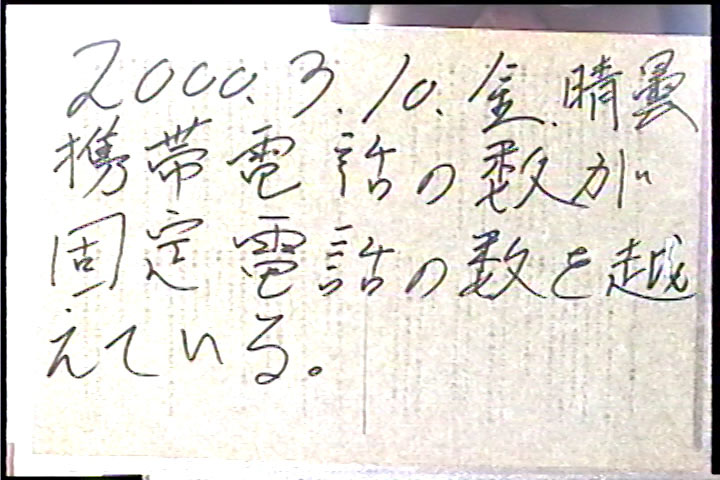 2000.3.10.金.晴曇
携帯電話の数が
固定電話の数を越
えている。